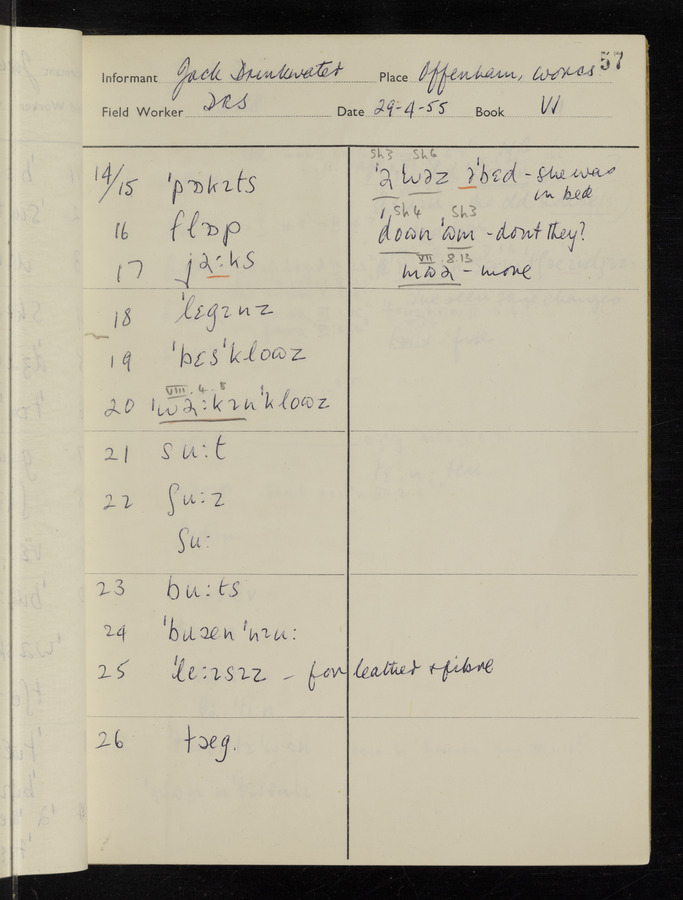 57
Informant Jack Drinkwater Place Offenham, Worcs
Field Worker DRS Date 29-4-55 Book VI
14/15 ˈpɒkɪts
16 flɒp
17 jəːks
18 ˈlegɪnz
19 ˈbɛsˈkloʊz
20 ˈwəːkɪnˈkloʊz
VIII.4.8
21 suːt
22 ʃuːz
ʃuː
23 buːts
24 ˈbuːenˈnɪuː
25 ˈleːɪsɪz - for leather & fibre
26 tæg.
Sh3 Sh6
ˈə wəz əˈbɛd - she was
in bed
Sh4 Sh3
doʊn ʊm - dont they?
VII.8.13
mʊə - more